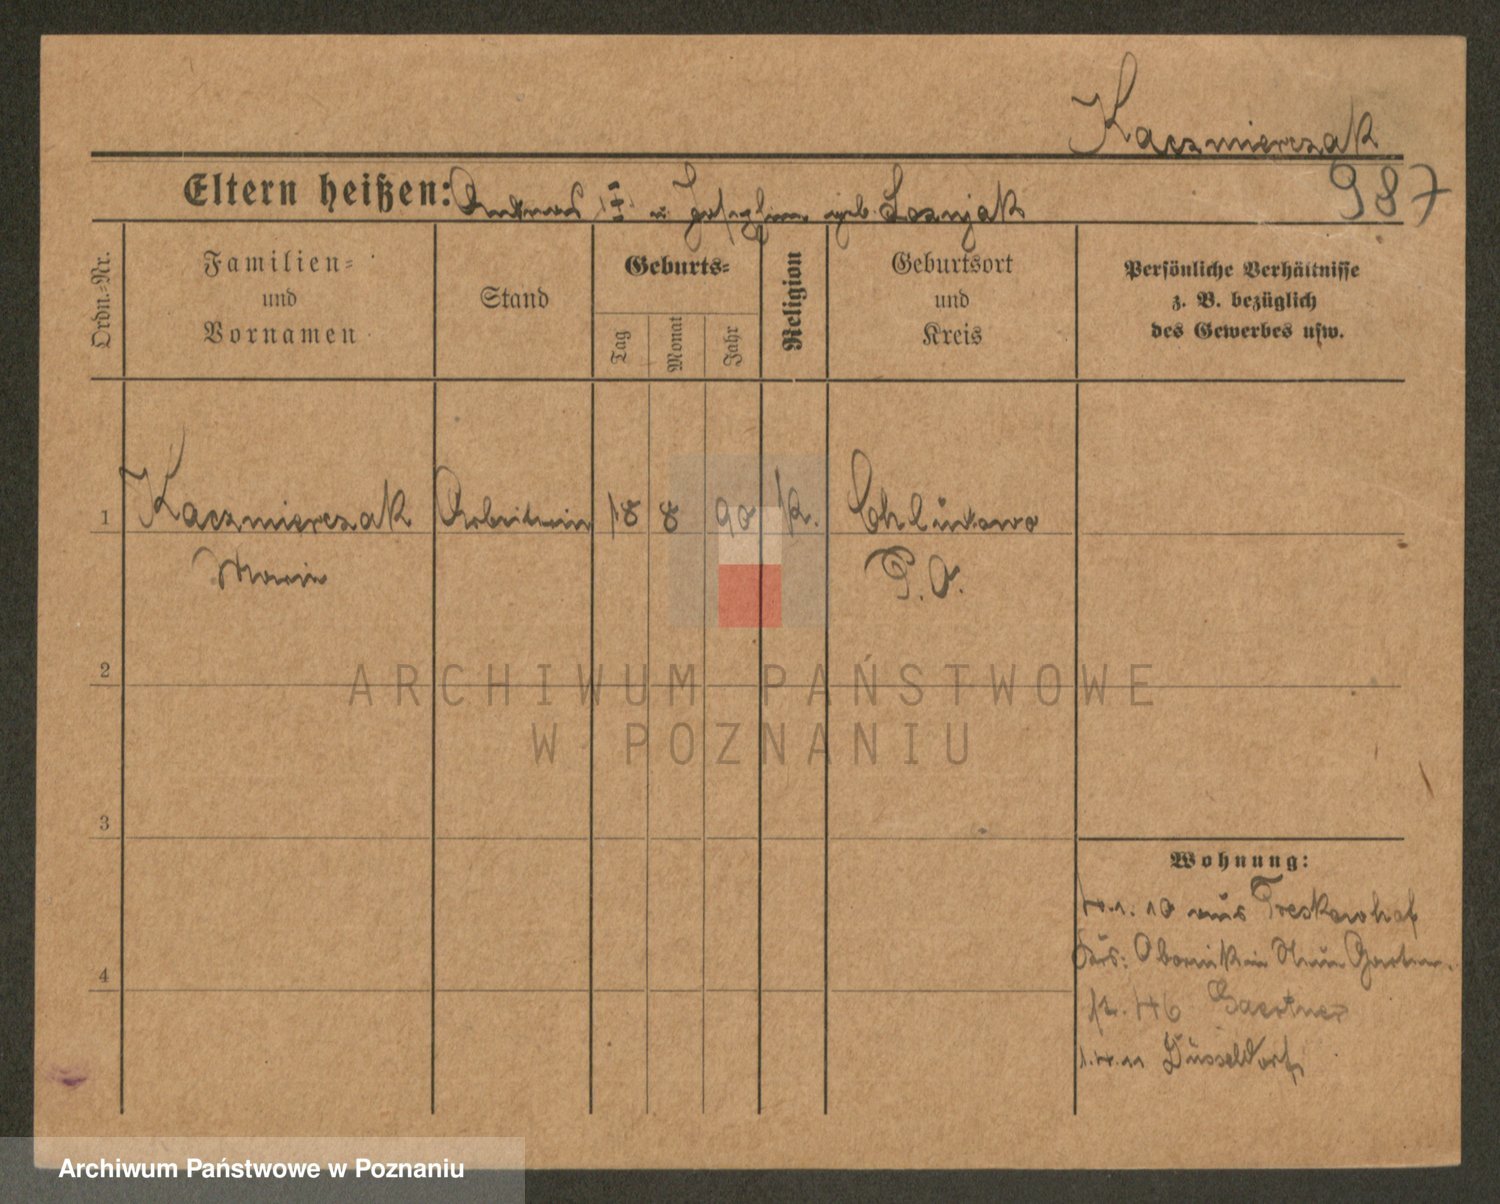 Kaczmierczak
987
Eltern heißen: Andreas u. Josephine geb. Lesnjak
Ordn.-Nr.
Familien-
und
Vornamen
Stand
Geburts-
Tag
Monat
Jahr
Religion
Geburtsort
und
Kreis
Persönliche Verhältnisse
z. B. bezüglich
des Gewerbes usw.
1 Kaczmierczak Arbeiterin 18 8 90 k. Chludowo
Marie P. O.
2
3
4
Wohnung:
10 aus Treskowhof
Krs: Obornik in Garten-
Gaertner
Düsseldorf
ARCHIWUM PAŃSTWOWE
W POZNANIU
Archiwum Państwowe w Poznaniu